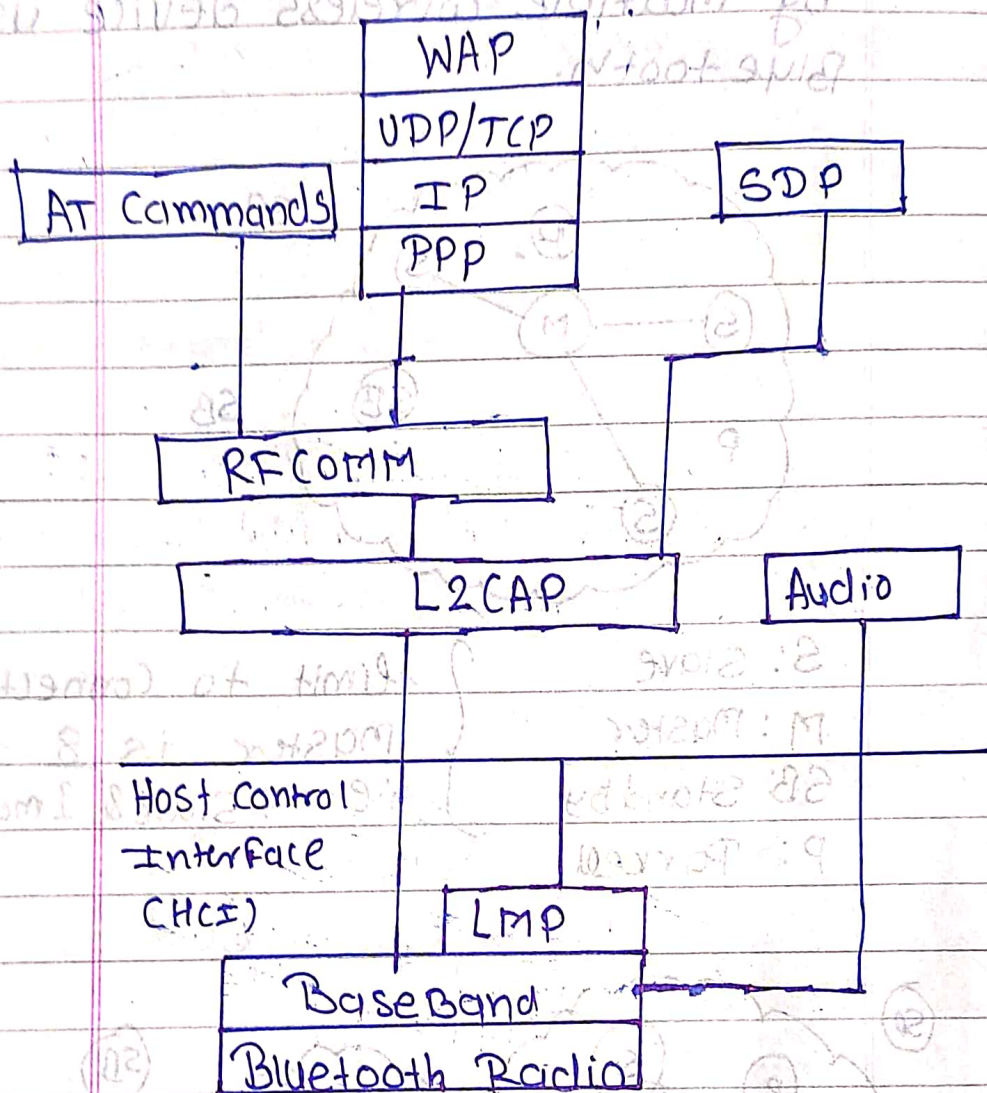 WAP
UDP/TCP
IP
PPP
AT Commands
SDP
RFCOMM
L2CAP
Audio
Host Control
Interface
(HCI)
LMP
BaseBand
Bluetooth Radio